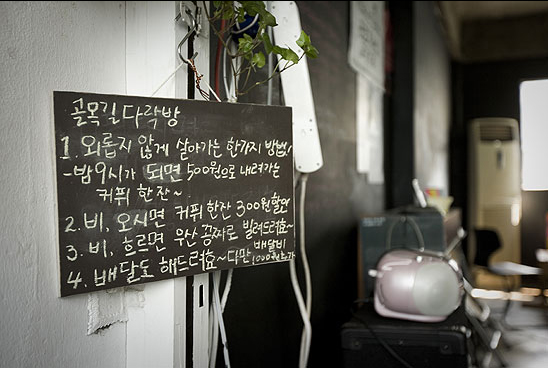 골목길 다락방
1. 외롭지 않게 살아가는 한가지 방법!
-밤9시가 되면 500원으로 내려가는
커퓌 한잔~
2. 비, 오시면 커퓌 한잔 300원 할인
3. 비, 흐르면 우산 공짜로 빌려드려효~
4. 배달도 해드려효~ 다만, 배달비 1000원 추가